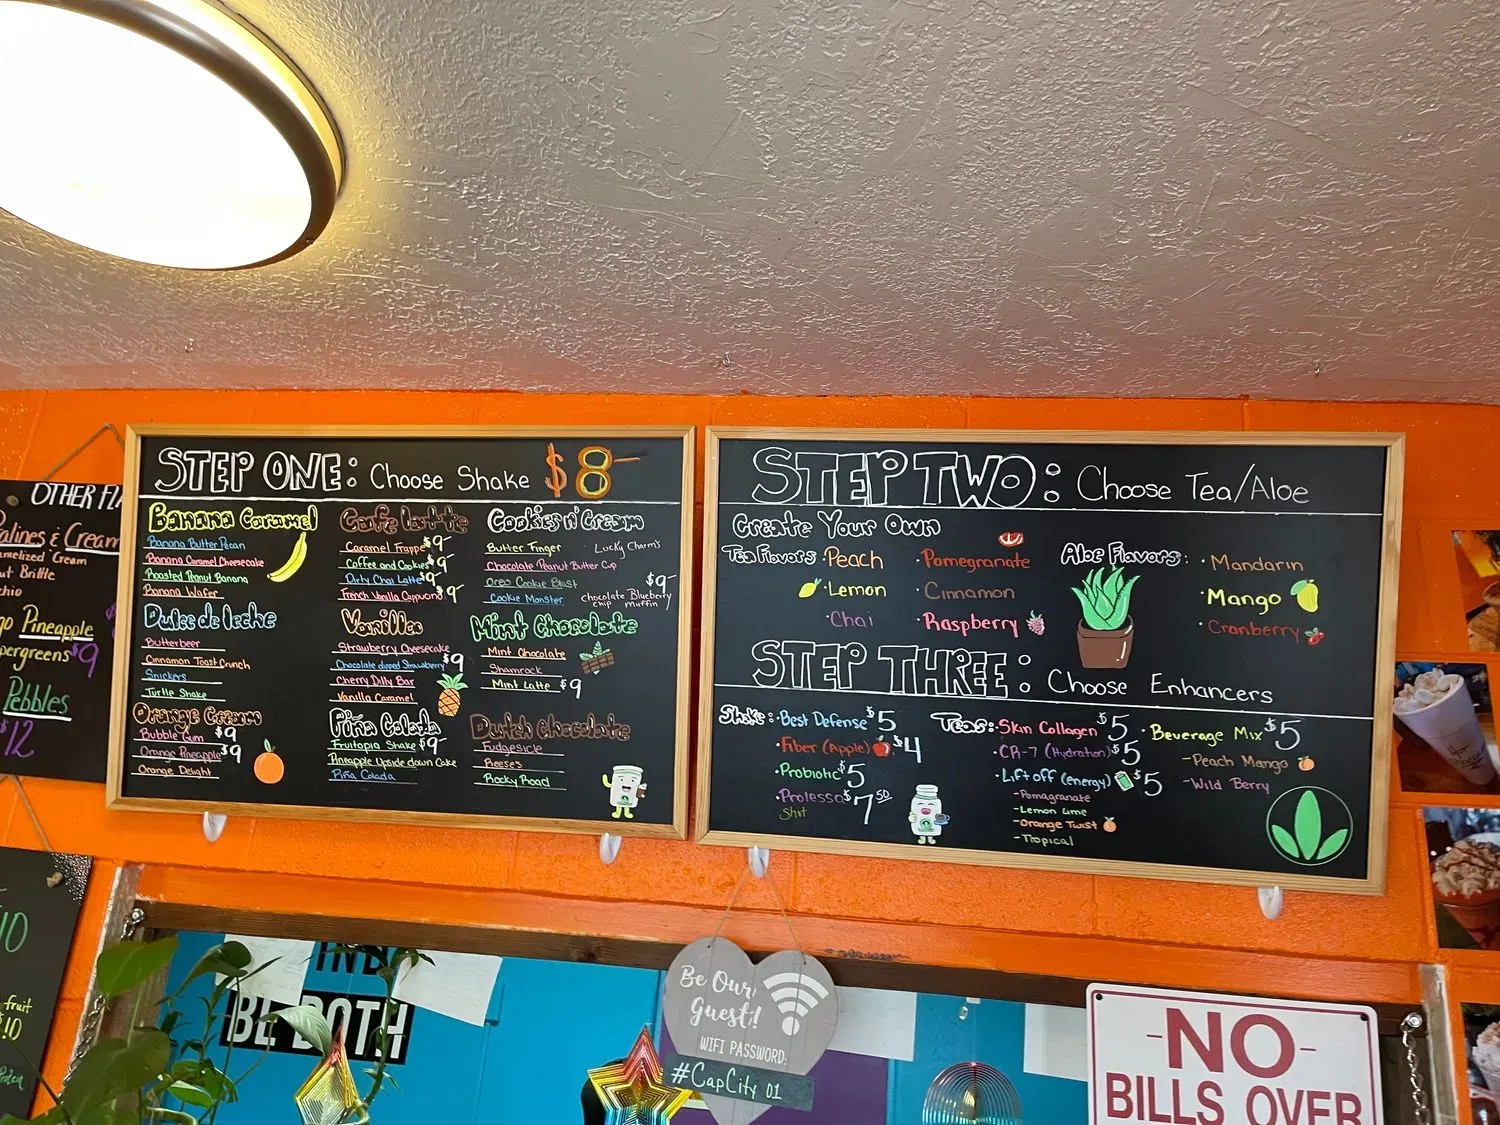 OTHER FLA
alines & Cream
amelized Cream
ut Brittle
chio
go Pineapple
pergreens $9
Pebbles
$12
10
fruit
$10
STEP ONE: Choose Shake $8-
Banana Caramel
Banana Butter Pecan
Banana Caramel Cheesecake
Roasted Peanut Banana
Banana Wafer
Dulce de leche
Butterbeer
Cinnamon Toast Crunch
Snickers
Turtle Shake
Orange Cream
Bubble Gum $9
Orange Pineapple $9
Orange Delight
Cafe latte
Caramel Frappe $9-
Coffee and Cookies $9-
Dirty Chai Latte $9-
French Vanilla Cappuccino $9-
Vanilla
Strawberry Cheesecake
Chocolate dipped Strawberry $9
Cherry Dilly Bar
Vanilla Caramel
Piña Colada
Fruitopia Shake $9-
Pineapple Upside down Cake
Piña Colada
Cookies n' Cream
Butter Finger
Lucky Charms
Chocolate Peanut Butter Cup
Oreo Cookie Blast
Cookie Monster
$9-
Chocolate Blueberry
chip muffin
Mint Chocolate
Mint Chocolate
Shamrock
Mint Latte $9
Dutch Chocolate
Fudgesicle
Reese's
Rocky Road
STEP TWO: Choose Tea/Aloe
Create Your Own
Tea Flavors: Peach
Lemon
Chai
Pomegranate
Cinnamon
Raspberry
Aloe Flavors:
Mandarin
Mango
Cranberry
STEP THREE: Choose Enhancers
Shake: Best Defense $5
Fiber (Apple) $4
Probiotic $5
Prolessa $7.50
Shot
Teas: Skin Collagen $5
CR-7 (Hydration) $5
Liftoff (energy) $5
-Pomagranate
-Lemon Lime
-Orange Twist
-Tropical
Beverage Mix $5
-Peach Mango
-Wild Berry
IND
BE BOTH
Be Our
Guest!
WIFI PASSWORD:
#CapCity 01
-NO-
BILLS OVER